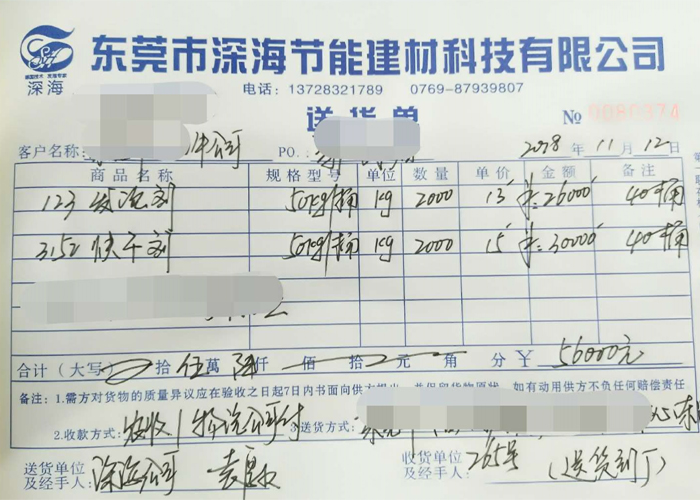 东莞市深海节能建材科技有限公司
深海
电话：13728321789 0769-87939807
送货单
№ 0080374
客户名称： 公司 PO.： 2018 年 11 月 12 日
商品名称 规格型号 单位 数量 单价 金额 备注
123 发泡剂 50kg/桶 kg 2000 13 26000 40桶
3152 快干剂 50kg/桶 kg 2000 15 30000 40桶
合计（大写） 拾 伍 萬 陆 仟 佰 拾 元 角 分 ￥ 56000元
备注：1.需方对货物的质量异议应在验收之日起7日内书面向供方提出，并保留货物原货，如有动用供方不负任何赔偿责任
2.收款方式： 物流公司付 3.送货方式：
送货单位及经手人： 深海公司 收货单位及经手人： 265号 （送货到厂）